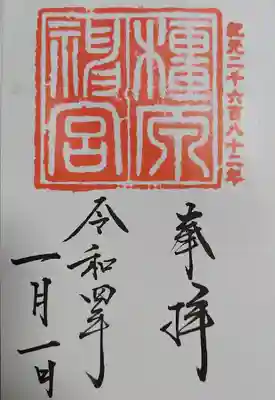 紀元二千六百八十二年
奉拝
橿原
神宮
令和四年
一月一日